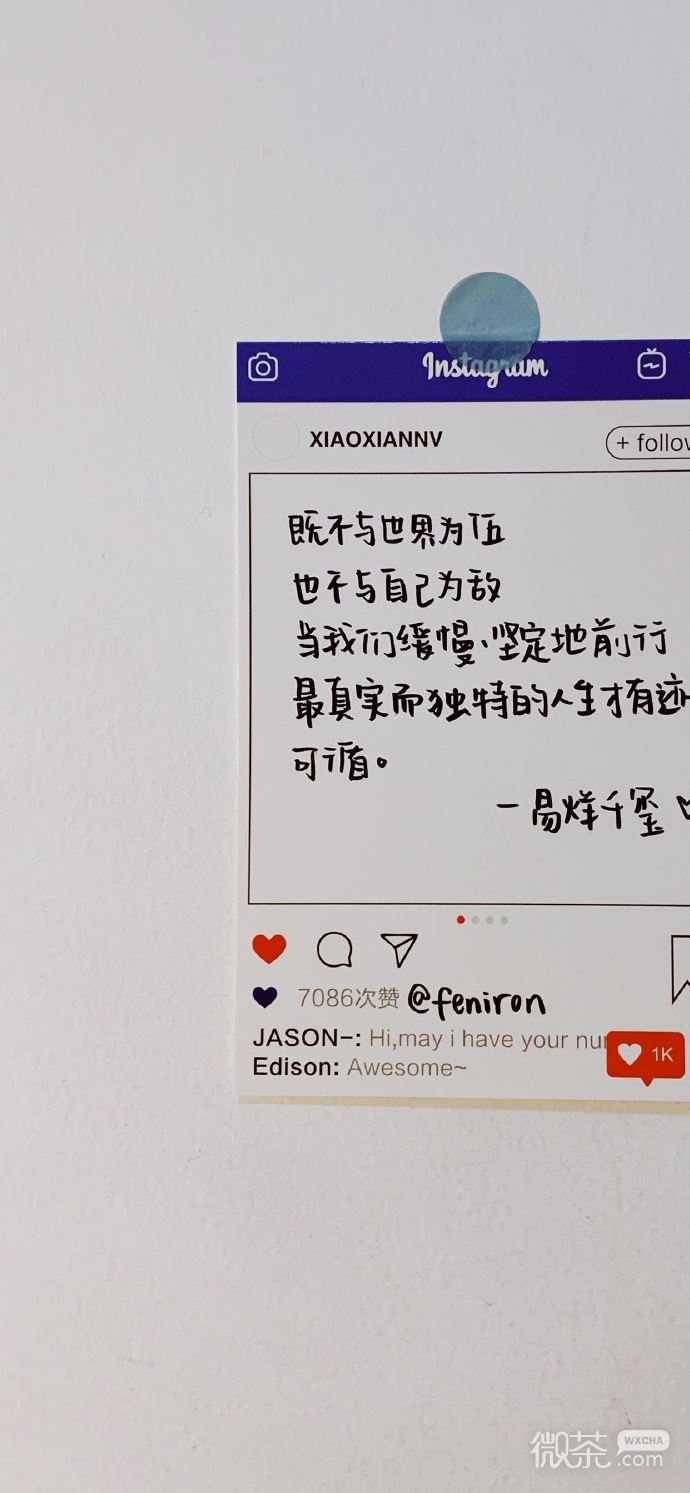 Instagram
XIAOXIANNV
+ follow
既不与世界为伍
也不与自己为敌
当我们缓慢、坚定地前行
最真实而独特的人生才有迹
可循。
—易烊千玺
7086次赞 @feniron
JASON-: Hi,may i have your nu
1K
Edison: Awesome~
微茶 WXCHA
.com